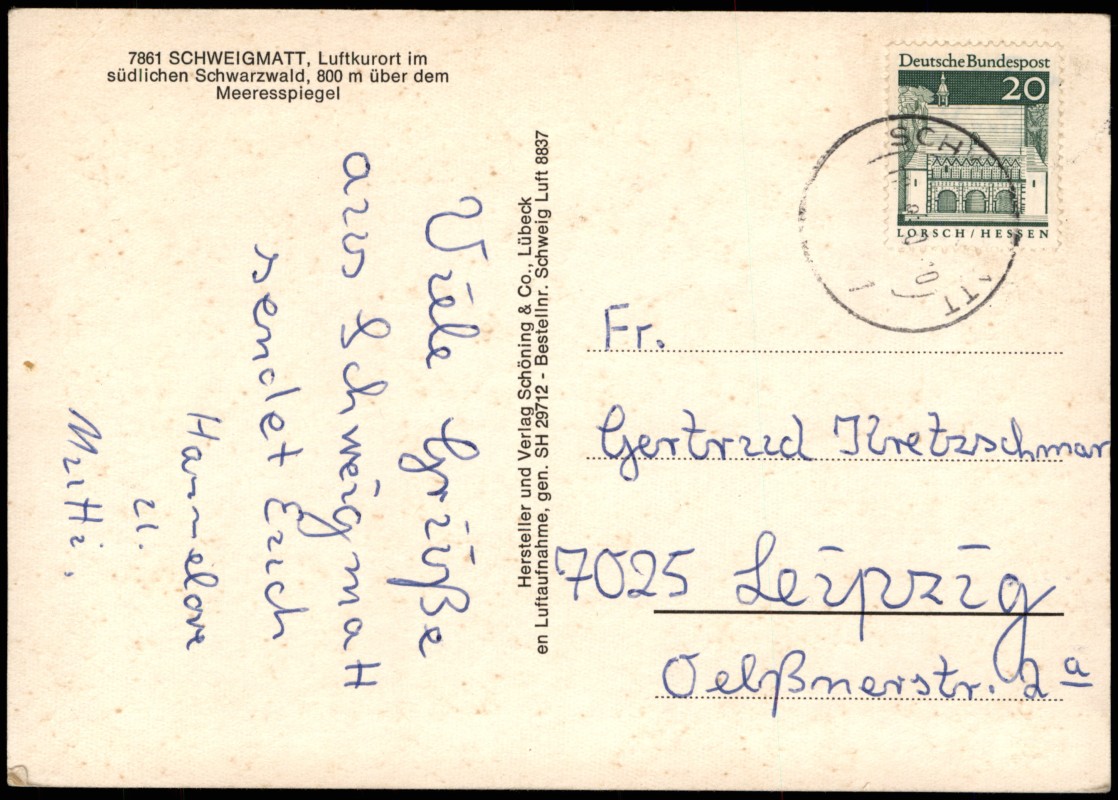 7861 SCHWEIGMATT, Luftkurort im
südlichen Schwarzwald, 800 m über dem
Meeresspiegel
Viele Grüße
aus Schweigmatt
sendet Erich
Hannelore
u.
Mutti.
Hersteller und Verlag Schöning & Co., Lübeck
en Luftaufnahme, gen. SH 29712 - Bestellnr. Schweig Luft 8837
Deutsche Bundespost
20
LORSCH/HESSEN
SCH
ATT
Fr.
Gertrud Kretzschmar
7025 Leipzig
Oelßnerstr. 2a